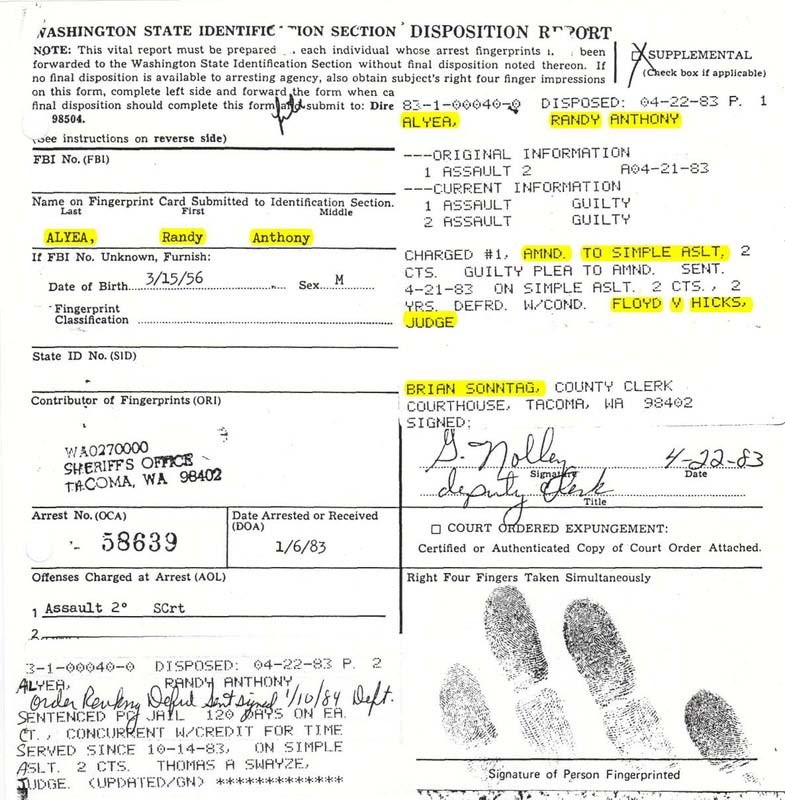 WASHINGTON STATE IDENTIFIC TION SECTION DISPOSITION REPORT
NOTE: This vital report must be prepared each individual whose arrest fingerprints been
forwarded to the Washington State Identification Section without final disposition noted thereon. If
no final disposition is available to arresting agency, also obtain subject's right four finger impressions
on this form, complete left side and forward the form when ca
final disposition should complete this form and submit to: Dire
98504.
(See instructions on reverse side)
SUPPLEMENTAL
(Check box if applicable)
FBI No. (FBI)
Name on Fingerprint Card Submitted to Identification Section.
Last First Middle
ALYEA, Randy Anthony
If FBI No. Unknown, Furnish:
Date of Birth 3/15/56 Sex M
Fingerprint
Classification
State ID No. (SID)
Contributor of Fingerprints (ORI)
WA0270000
SHERIFFS OFFICE
TACOMA, WA 98402
Arrest No. (OCA)
58639
Date Arrested or Received
(DOA)
1/6/83
Offenses Charged at Arrest (AOL)
1 Assault 2° SCrt
2
3-1-00040-0 DISPOSED: 04-22-83 P. 2
ALYEA, RANDY ANTHONY
Order Revking Defrd Sent signed 1/10/84 Dept.
SENTENCED PC JAIL 120 DAYS ON EA.
CT., CONCURRENT W/CREDIT FOR TIME
SERVED SINCE 10-14-83, ON SIMPLE
ASLT. 2 CTS. THOMAS A SWAYZE,
JUDGE. (UPDATED/GN) *************
83-1-00040-0 DISPOSED: 04-22-83 P. 1
ALYEA, RANDY ANTHONY
---ORIGINAL INFORMATION
1 ASSAULT 2 A04-21-83
---CURRENT INFORMATION
1 ASSAULT GUILTY
2 ASSAULT GUILTY
CHARGED #1, AMND. TO SIMPLE ASLT, 2
CTS. GUILTY PLEA TO AMND. SENT.
4-21-83 ON SIMPLE ASLT. 2 CTS., 2
YRS. DEFRD. W/COND. FLOYD V HICKS,
JUDGE
BRIAN SONNTAG, COUNTY CLERK
COURTHOUSE, TACOMA, WA 98402
SIGNED:
G. Nolley 4-22-83
Signature Date
deputy Clerk
Title
COURT ORDERED EXPUNGEMENT:
Certified or Authenticated Copy of Court Order Attached.
Right Four Fingers Taken Simultaneously
Signature of Person Fingerprinted